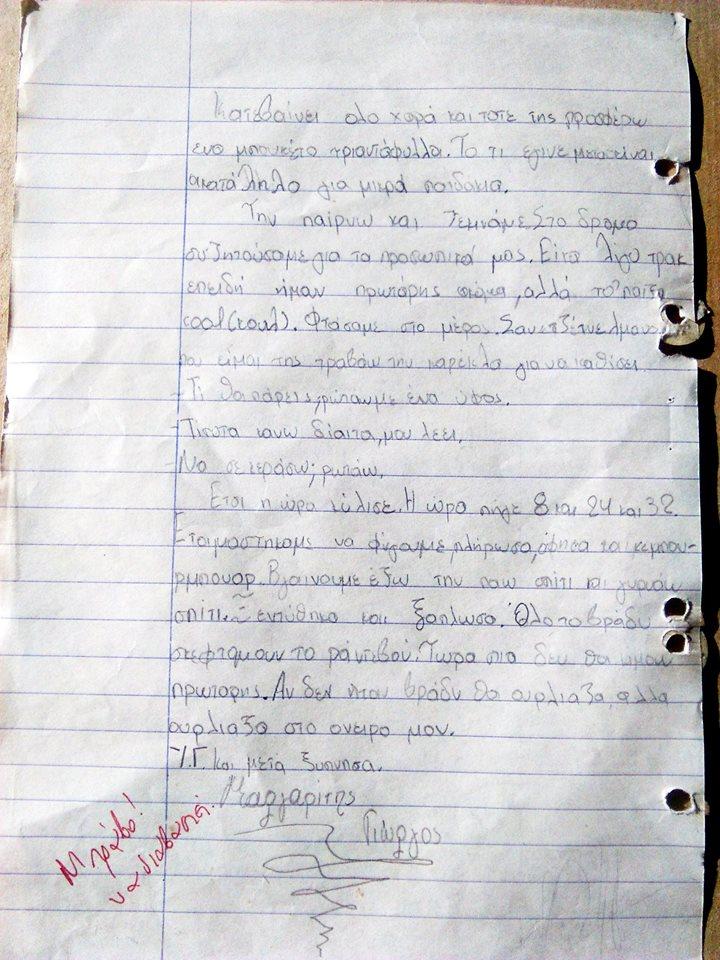 Κατεβαίνει ολο χαρά και τοτε της προσφέρω
ενα μπουκέτο τριαντάφυλλα. Το τι εγινε μετα ειναι
ακατάληλο για μικρά παιδακια.
Την παίρνω και Στο δρομο
συζητούσαμε για τα προσωπικά μας. Ειχα λίγο τρακ
επειδή ήμαν πρωτάρης ακόμα, αλλά το 'παιξα
cool (κουλ). Φτάσαμε στο μέρος. Σαν
που είμαι της τραβάω την καρεκλα για να καθίσει.
-Τι θα πάρεις; ρώταωμε ένα ύφος.
-Τιποτα κανω δίαιτα, μου λεει.
-Να σε κεράσω; ρωτάω.
Ετσι η ώρα κύλισε. Η ώρα πήγε 8 και 24 και 32.
Ετοιμαστηκαμε να φύγουμε, πλήρωσα, άφησα και πεμπου-
ρμπουαρ. Βγαινουμε έξω την παω σπίτι και γυρνάω
σπίτι. ξεντύθηκα και ξαπλωσα. Όλο το βράδυ
σκεφτομουν το ράντεβού. Τωρα πια δεν θα ημαν
πρωταρης. Αν δεν ηταν βράδυ θα ουρλιαζα, αλλα
ουρλιαξα στο ονειρο μου.
Υ.Γ. Και μετά ξυπνησα.
Μαργαρίτης
Γιώργος
Μπράβο!
να διαβαστεί.